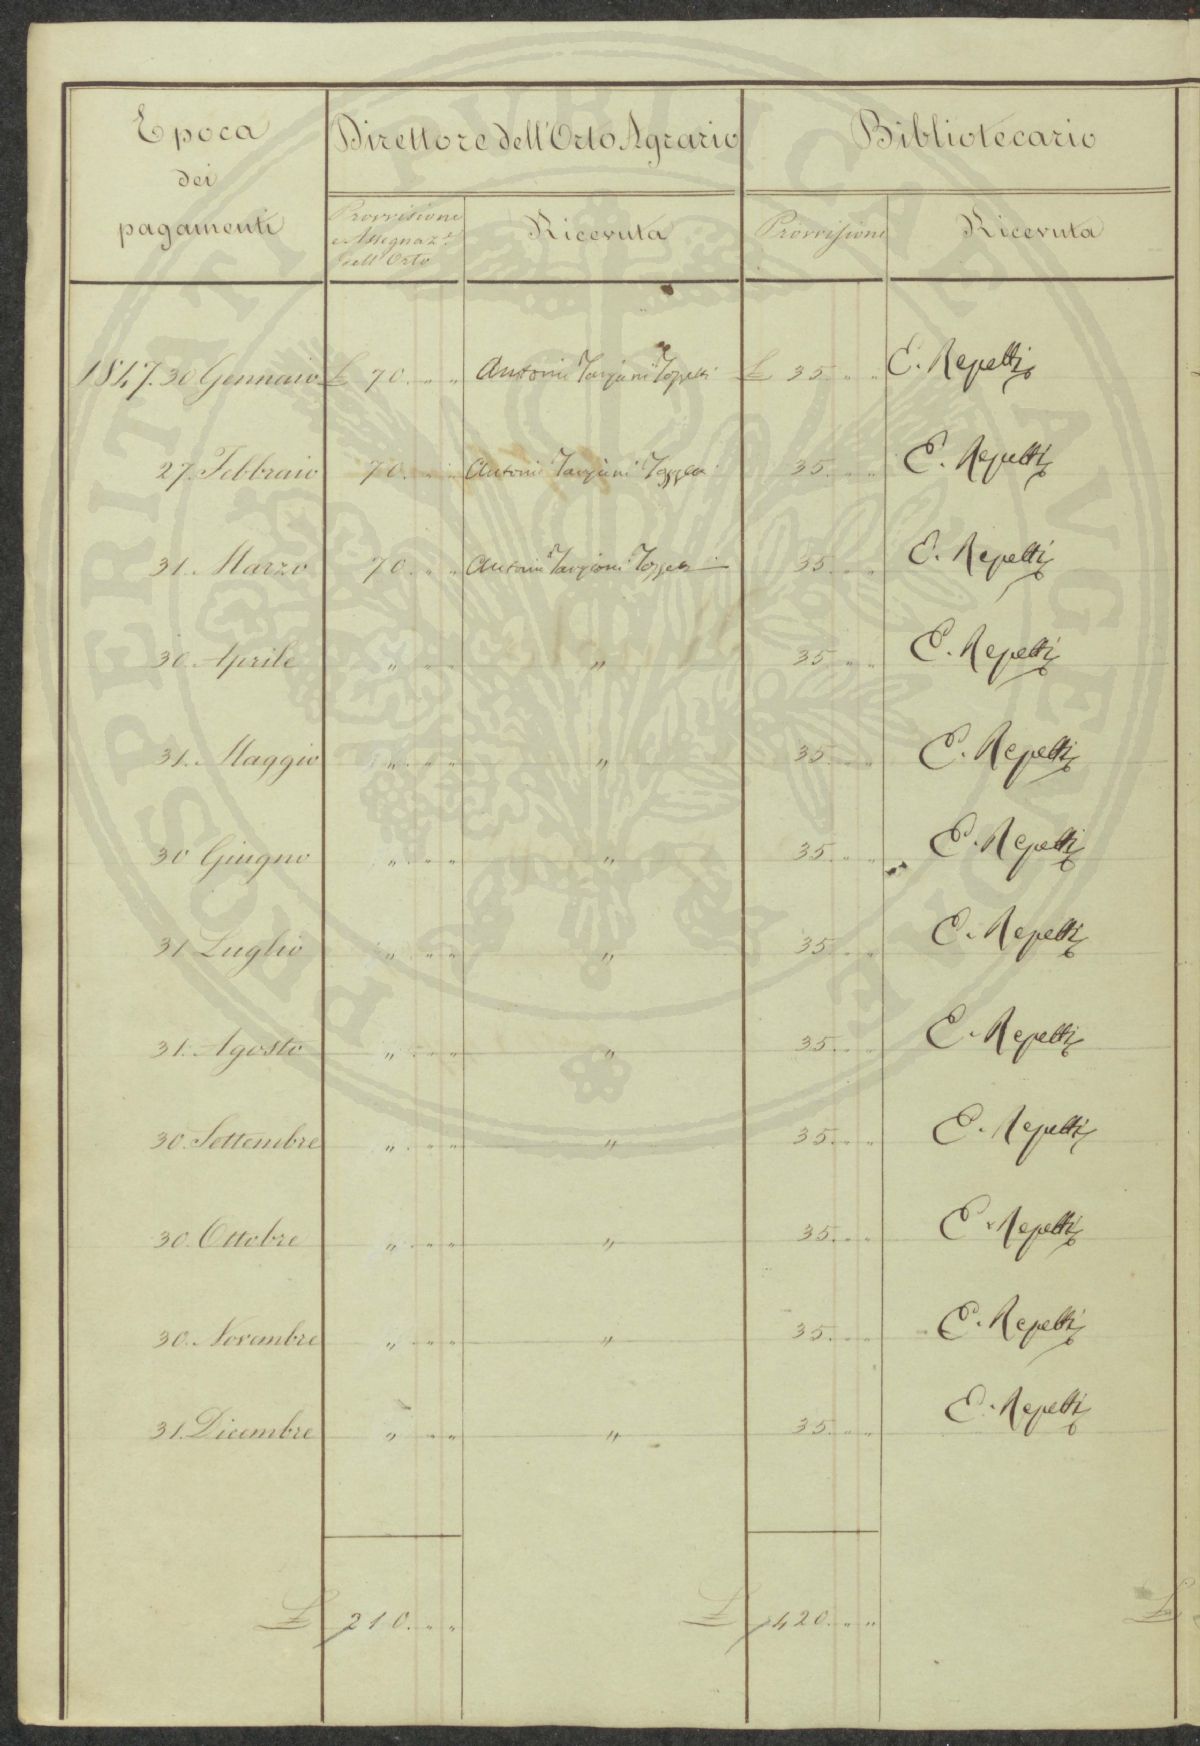 Epoca
dei
pagamenti
Direttore dell'Orto Agrario
Bibliotecario
Provvisione
e Assegnaz.e
dell'Orto
Ricevuta
Provvisione
Ricevuta
1847. 30 Gennaio £ 70. " " Antonio Targioni Tozzetti £ 35. " " E. Repetti
27. Febbraio 70. " " Antonio Targioni Tozzetti 35. " " E. Repetti
31. Marzo 70. " " Antonio Targioni Tozzetti 35. " " E. Repetti
30. Aprile " " " " 35. " " E. Repetti
31. Maggio " " " " 35. " " E. Repetti
30 Giugno " " " " 35. " " E. Repetti
31 Luglio " " " " 35. " " E. Repetti
31. Agosto " " " " 35. " " E. Repetti
30. Settembre " " " " 35. " " E. Repetti
30. Ottobre " " " " 35. " " E. Repetti
30. Novembre " " " " 35. " " E. Repetti
31. Dicembre " " " " 35. " " E. Repetti
£ 210. " " £ 420. " " £
PROSPERITATI PVBLICAE AVGENDAE